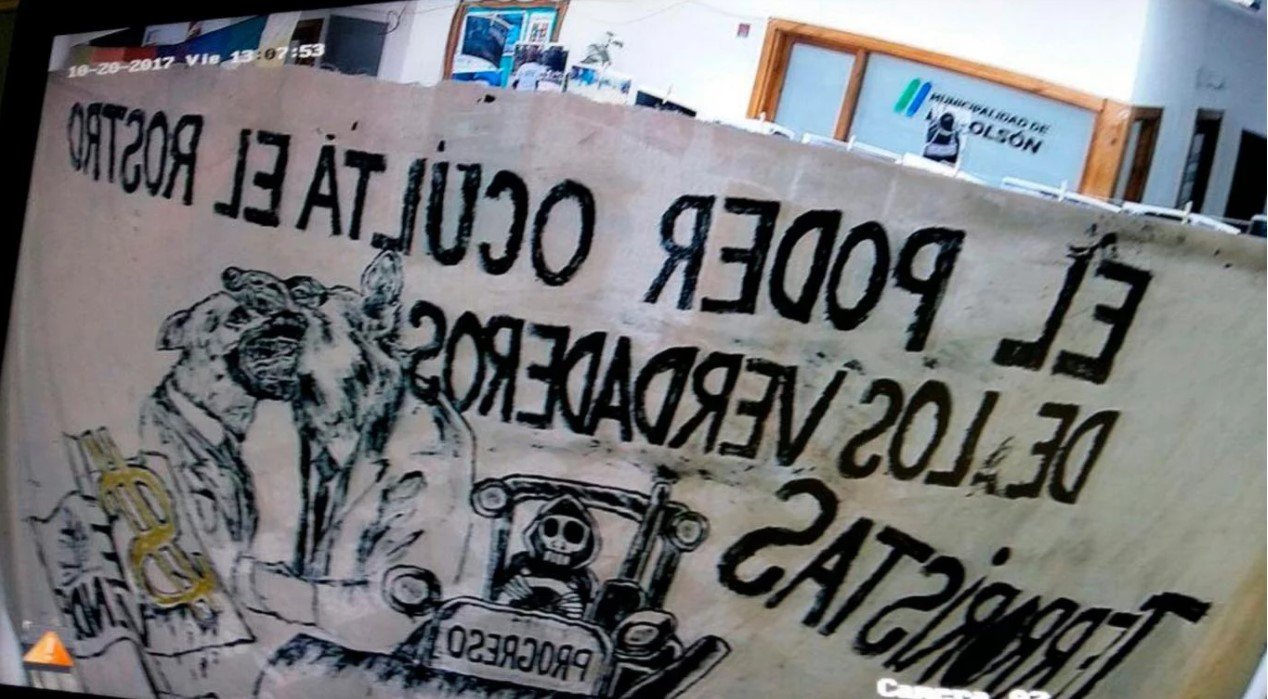 10-20-2017 Vie 13:07:53
MUNICIPALIDAD DE
OLSÓN
EL PODER OCULTA EL ROSTRO
DE LOS VERDADEROS
TERRORISTAS
PROGRESO
Camera 03